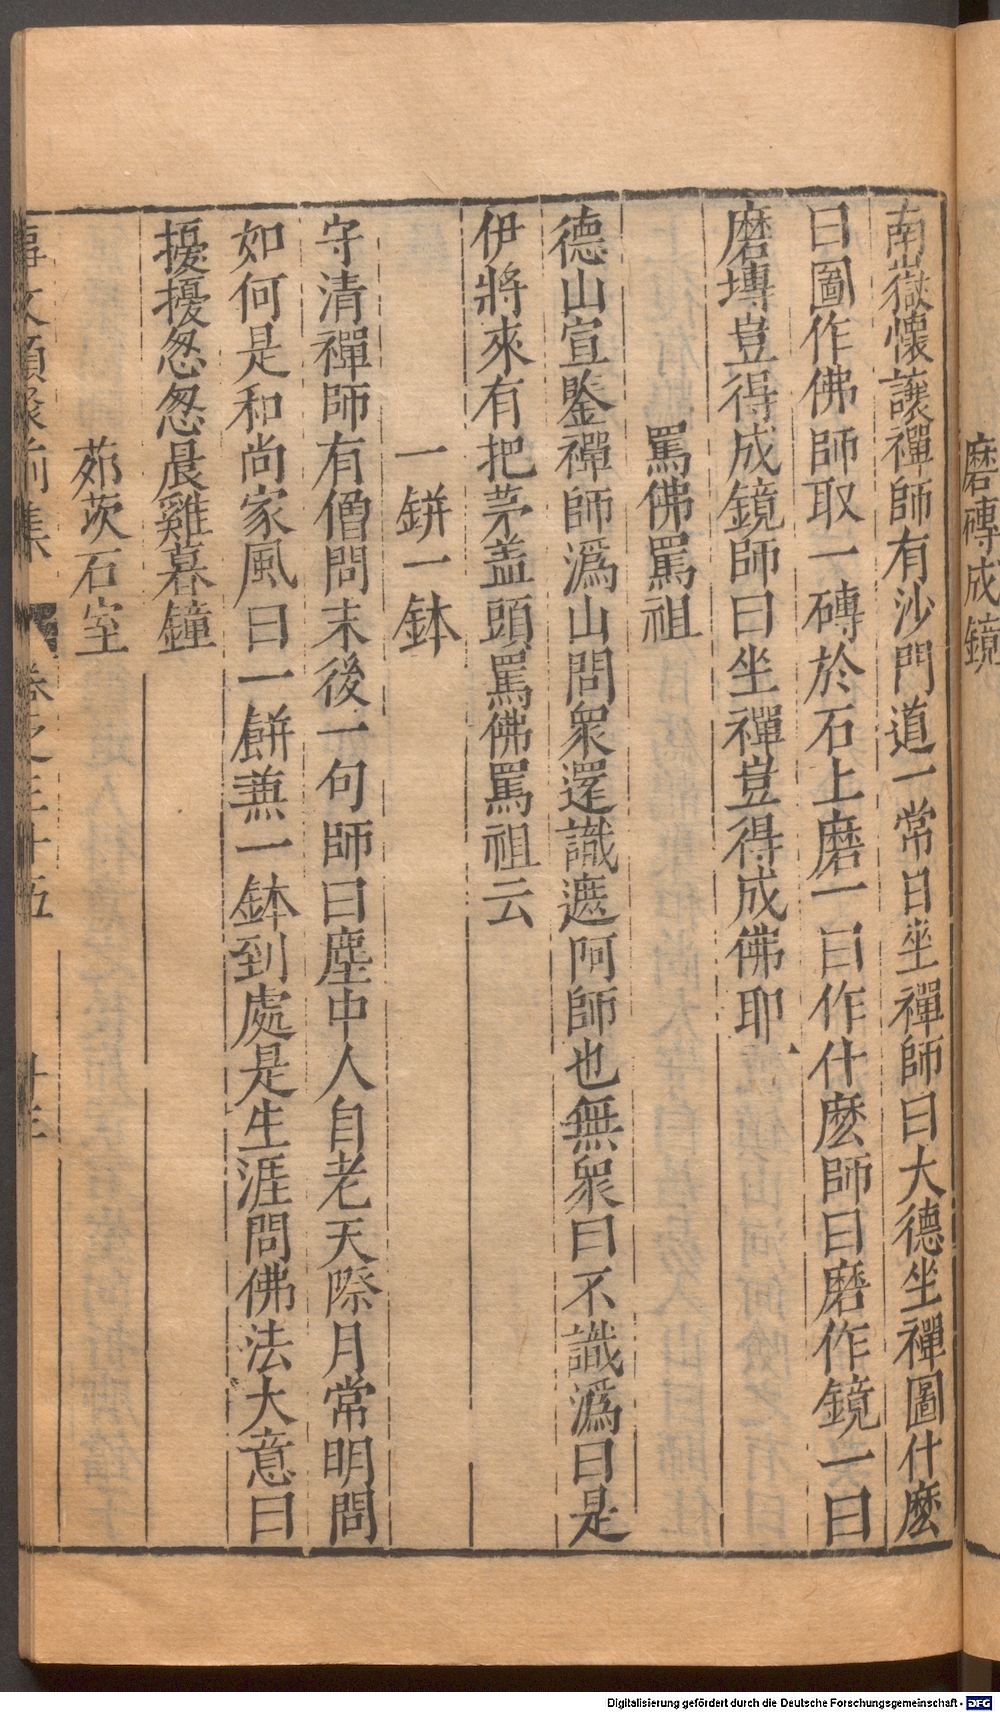 磨磚成鏡
南嶽懷讓禪師有沙門道一常日坐禪師曰大德坐禪圖什麽
曰圖作佛師取一磚於石上磨一曰作什麽師曰磨作鏡一曰
磨塼豈得成鏡師曰坐禪豈得成佛耶
罵佛罵祖
德山宣鑒禪師溈山問衆還識遮阿師也無衆曰不識溈曰是
伊將來有把茅盖頭罵佛罵祖云
一缾一鉢
守清禪師有僧問末後一句師曰塵中人自老天際月常明問
如何是和尚家風曰一缾兼一鉢到處是生涯問佛法大意曰
擾擾怱怱晨雞暮鐘
茆茨石室
事文類聚前集 卷之三十五
Digitalisierung gefördert durch die Deutsche Forschungsgemeinschaft - DFG